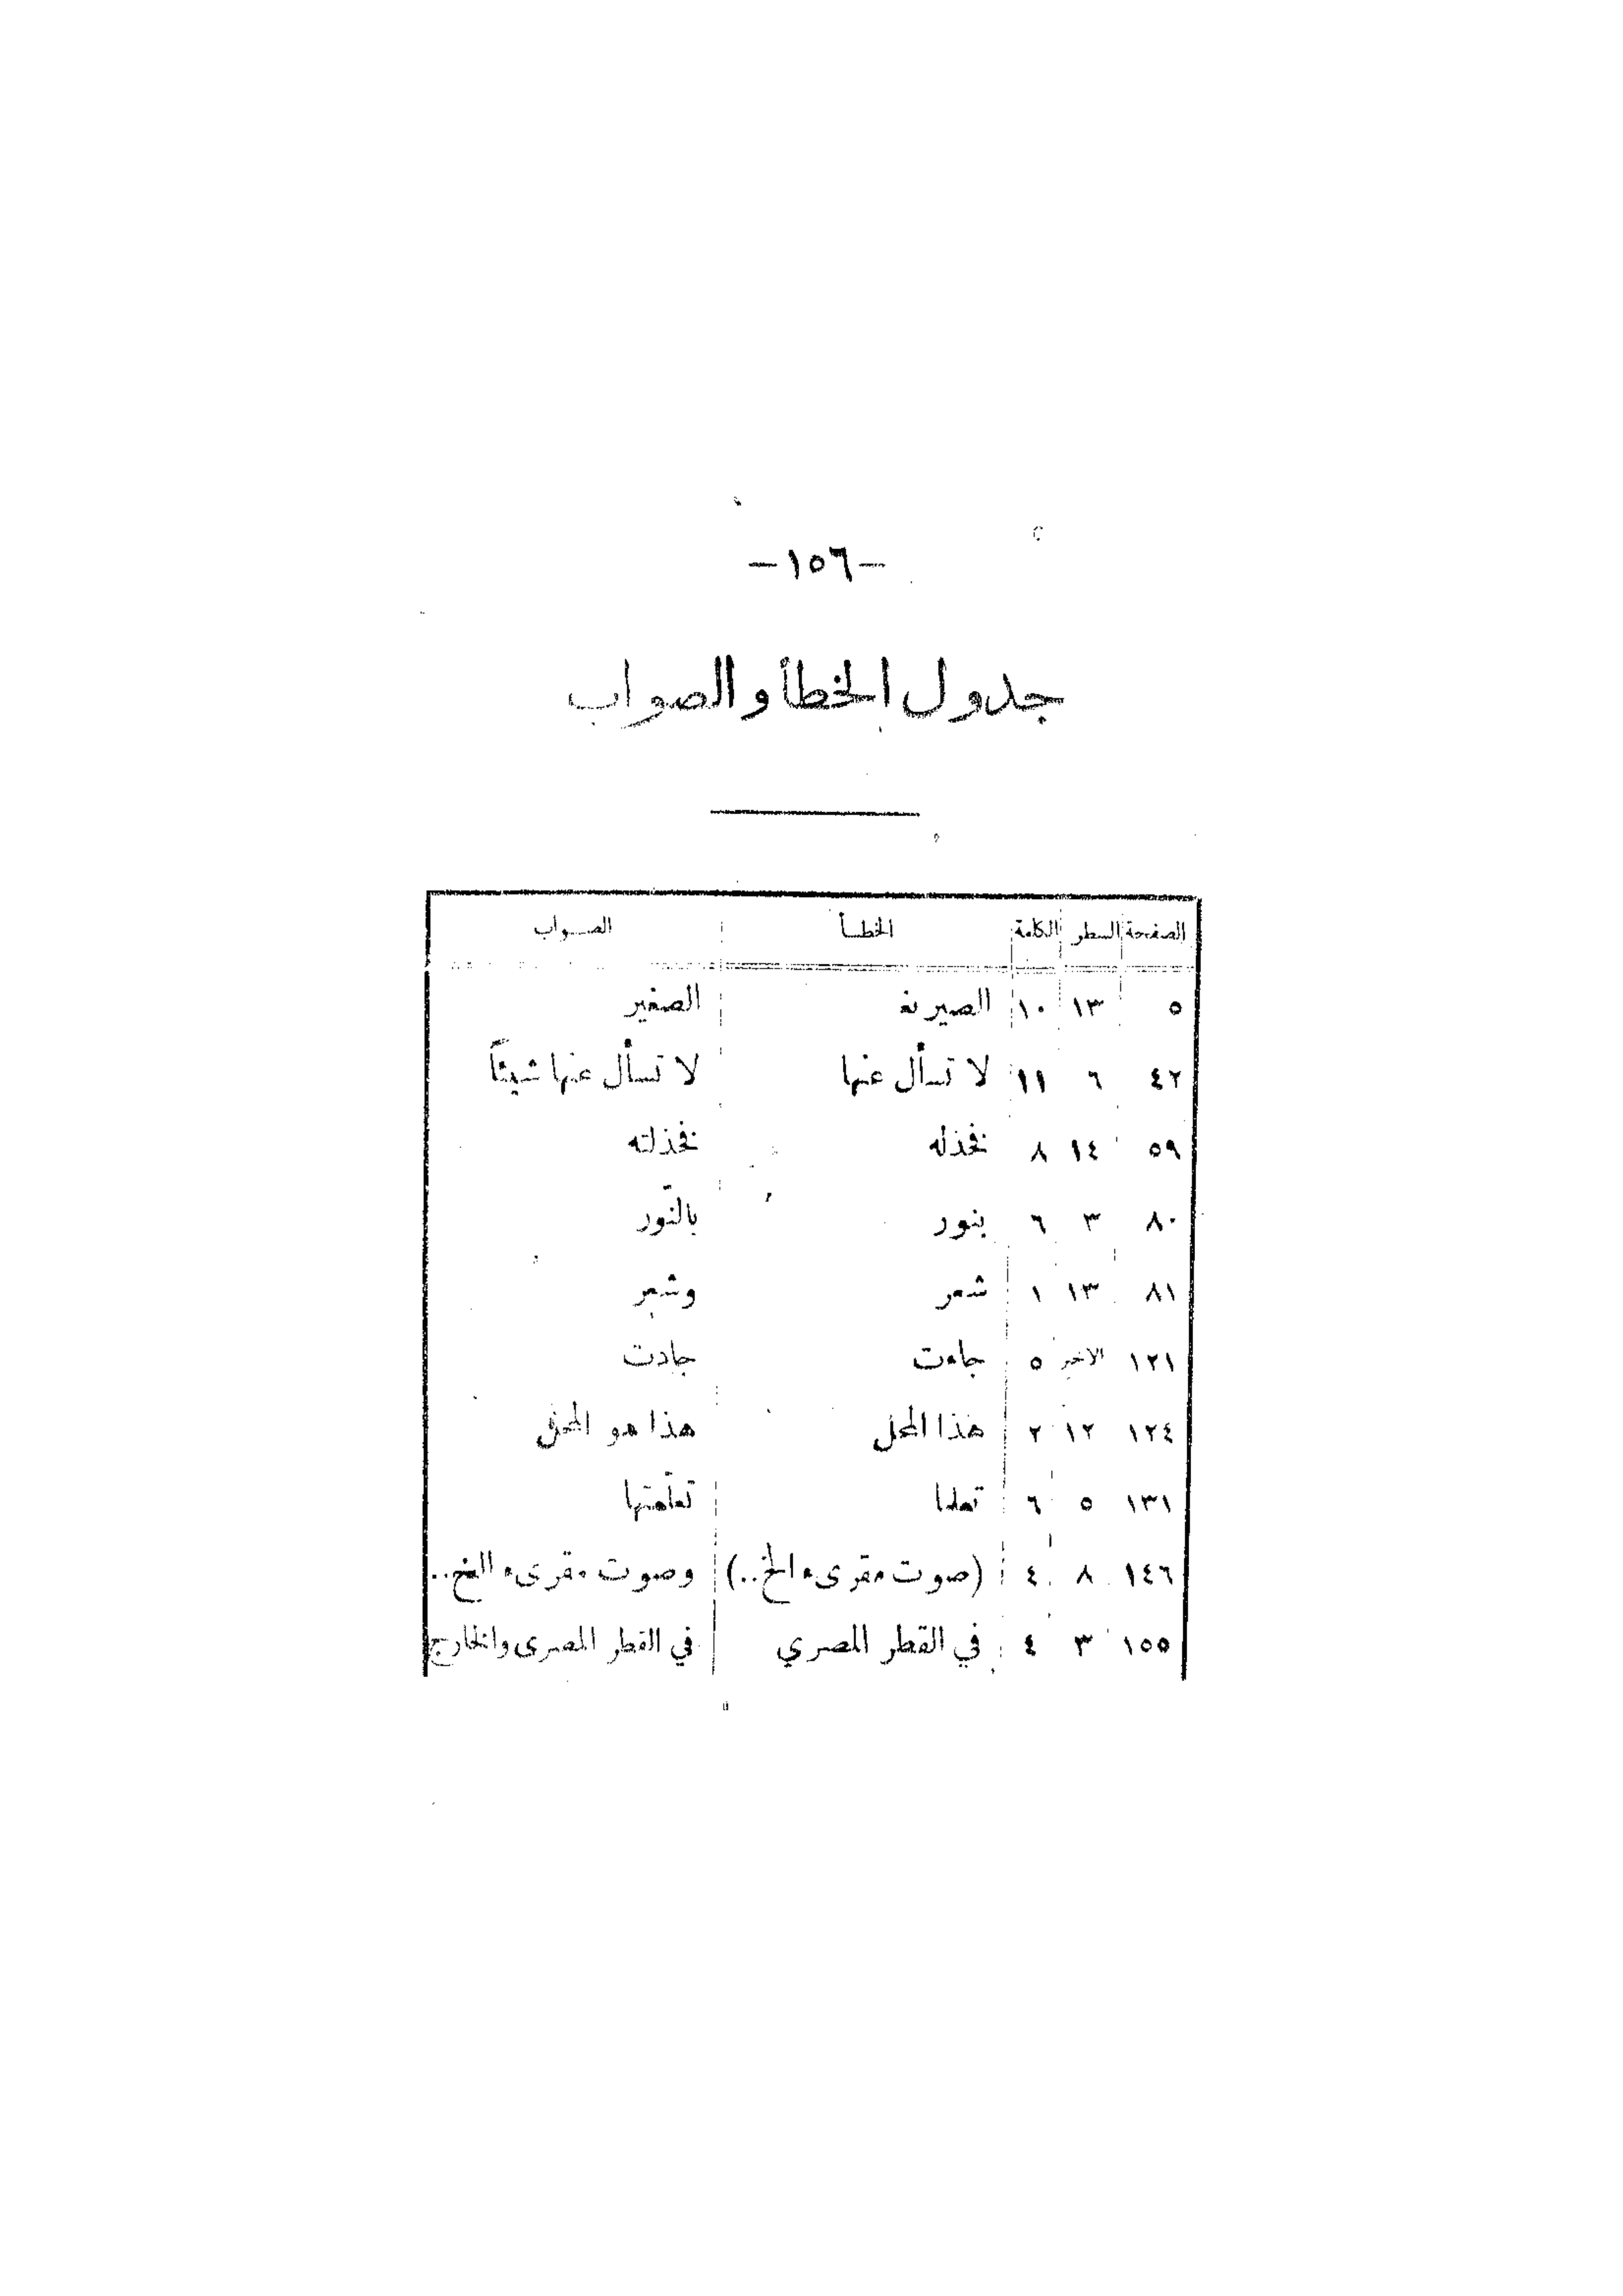 –١٥٦–
جدول الخطأ والصواب
الصفحة السطر الكلمة الخطأ الصواب
٥ ١٣ ١٠ الصيرنغ الصغير
٤٢ ٦ ١١ لا تسأل عنها لا تسأل عنها شيئاً
٥٩ ١٤ ٨ فخذله فخذلته
٨٠ ٣ ٦ بنور بالنّور
٨١ ١٣ ١ شعر وشعر
١٢١ الاخير ٥ جاءت جادت
١٢٤ ١٢ ٢ هذا المحل هذا هو
١٣١ ٥ ٦ تعلّمتها
١٤٦ ٨ ٤ (صوت مقرىء الخ..) وصوت مقرىء الخ..
١٥٥ ٣ ٤ في القطر المصري في القطر المصرى والخارج